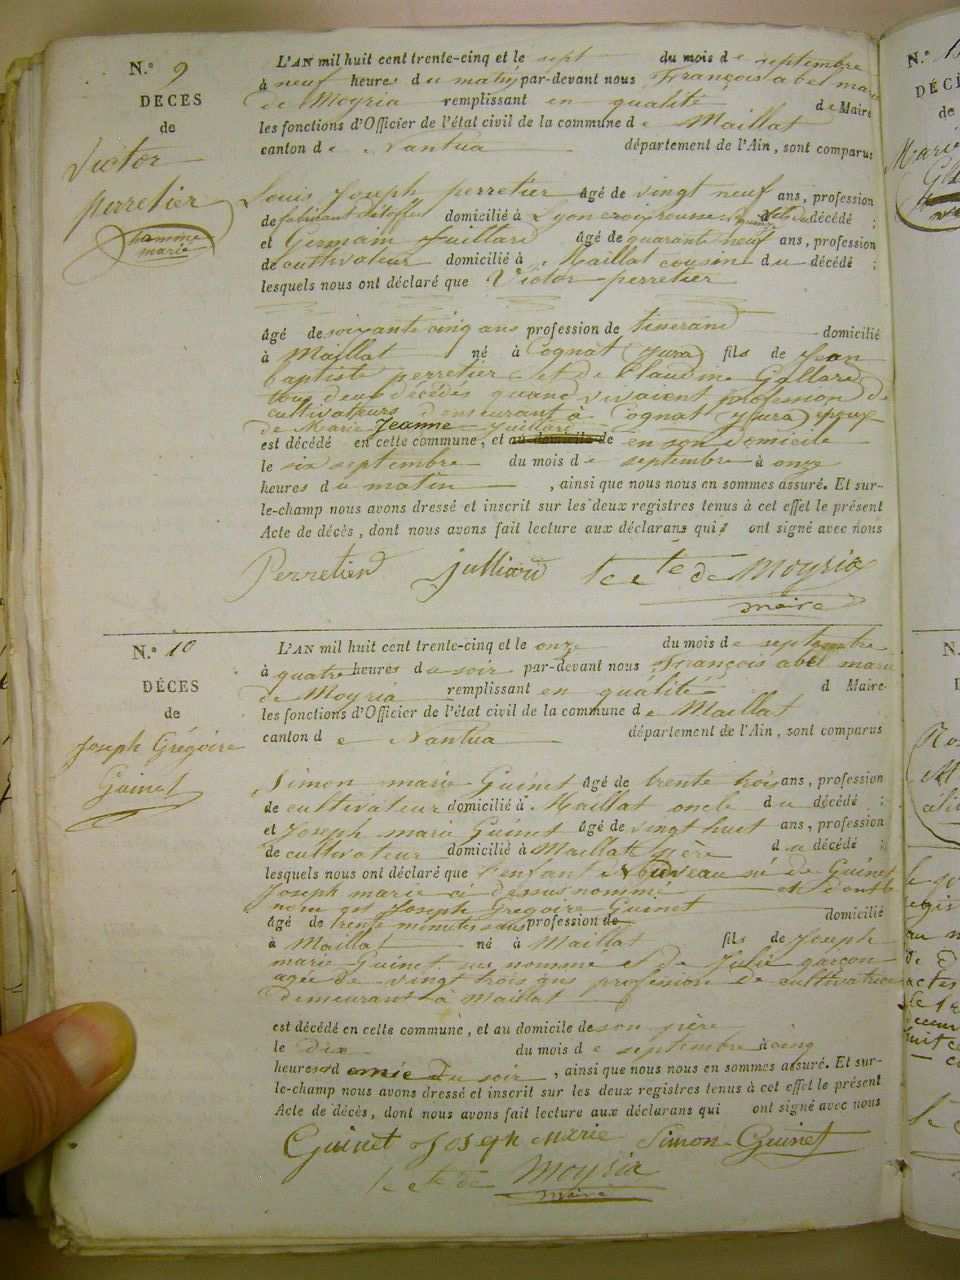 N.° 9
DÉCES
de
Victor
perretier
homme
marié
L'AN mil huit cent trente-cinq et le sept du mois de septembre
à neuf heures du matin par-devant nous François abel marie
de Moyria remplissant en qualité de Maire
les fonctions d'Officier de l'état civil de la commune de Maillat
canton de Nantua département de l'Ain, sont comparus
Louis Joseph perretier âgé de vingt neuf ans, profession
de fabricant détoffes domicilié à Lyon croixrousse fils du décédé ;
et Germain Juillard âgé de quarante neuf ans, profession
de cultivateur domicilié à Maillat cousin du décédé ;
lesquels nous ont déclaré que Victor perretier
âgé de soixante cinq ans profession de tisserand domicilié
à Maillat né à Cognat (jura) fils de Jean
baptiste perretier et de Claudine Gallard
tous deux décédés quand vivaient profession de
cultivateurs demeurant à Cognat (jura) époux
de Marie Jeanne Juillard
est décédé en cette commune, et au domicile de en son domicile
le six septembre du mois de septembre à onze
heures du matin , ainsi que nous nous en sommes assuré. Et sur-
le-champ nous avons dressé et inscrit sur les deux registres tenus à cet effet le présent
Acte de décès, dont nous avons fait lecture aux déclarans qui ont signé avec nous
Perretier julliard le cte de Moyria
maire
N.° 10
DÉCES
de
Joseph Grégoire
Guinet
L'AN mil huit cent trente-cinq et le onze du mois de septembre
à quatre heures du soir par-devant nous François abel marie
de Moyria remplissant en qualité d Maire
les fonctions d'Officier de l'état civil de la commune de Maillat
canton de Nantua département de l'Ain, sont comparus
Simon marie Guinet âgé de trente trois ans, profession
de cultivateur domicilié à Maillat oncle du décédé ;
et Joseph marie Guinet âgé de vingt huit ans, profession
de cultivateur domicilié à Maillat père du décédé ;
lesquels nous ont déclaré que l'enfant Nouveau né de Guinet
Joseph marie ci dessus nommé et dont le
nom est Joseph Grégoire Guinet
âgé de trente minutes sans profession de domicilié
à Maillat né à Maillat fils de Joseph
marie Guinet su nommé et de Julie garçon
agée de vingt trois ans profession de cultivatrice
demeurant à Maillat
est décédé en cette commune, et au domicile de son père
le dix du mois de septembre à cinq
heures d emie du soir , ainsi que nous nous en sommes assuré. Et sur-
le-champ nous avons dressé et inscrit sur les deux registres tenus à cet effet le présent
Acte de décès, dont nous avons fait lecture aux déclarans qui ont signé avec nous
Guinet Joseph marie Simon Guinet
le cte de Moyria
maire